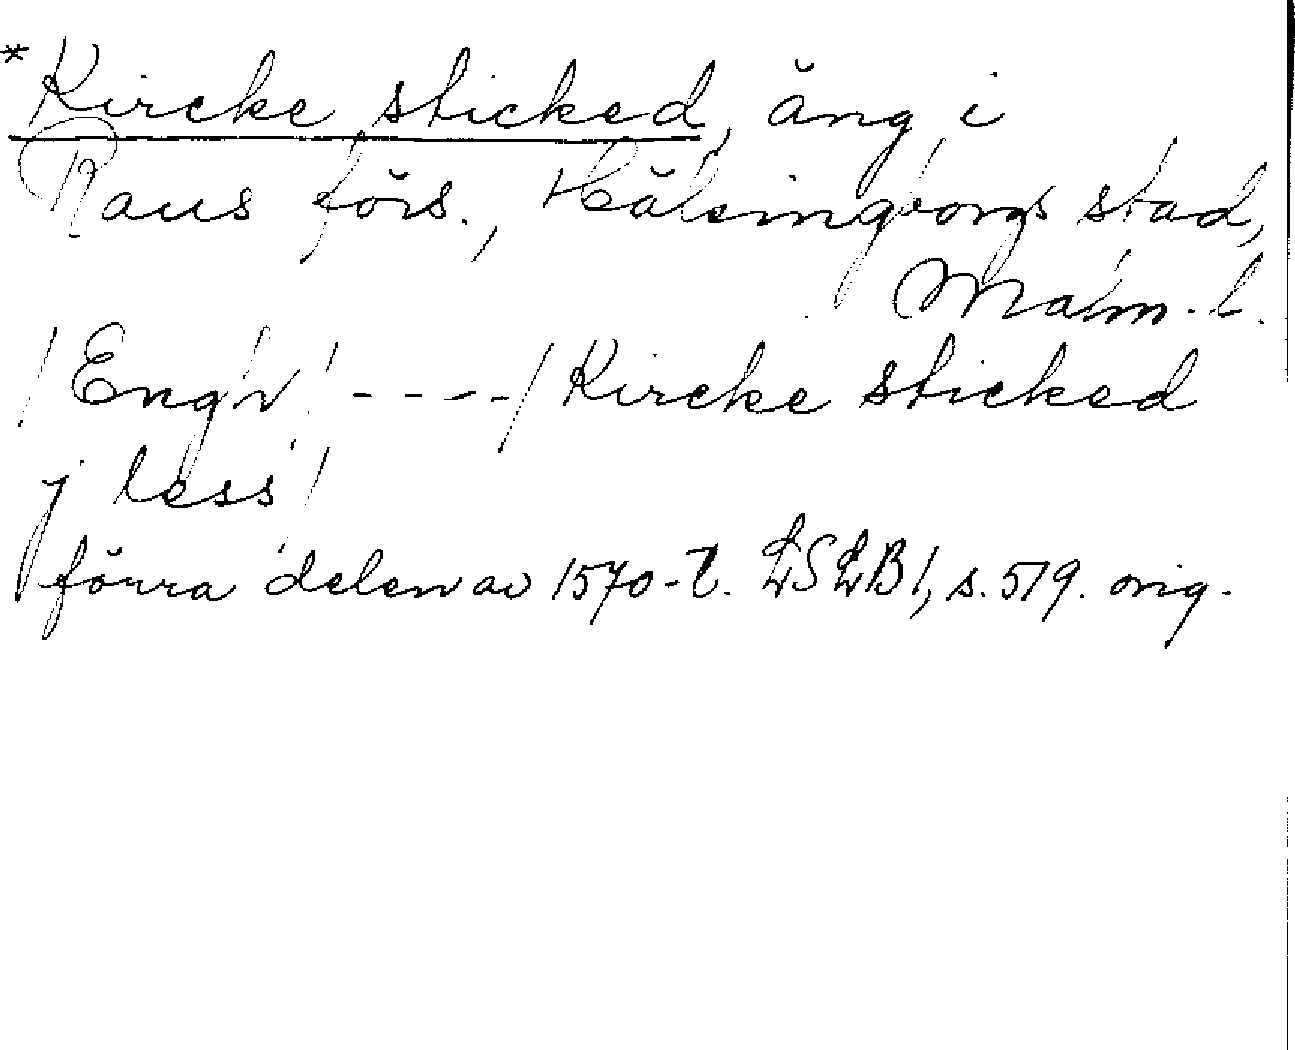 *Kircke sticked, äng i
Raus förs., Hälsingborgs stad,
Malm. l.
/Engh/ - - - -/ Kircke sticked
j less/
förra delen av 1570-t. LSLB1, s. 519. orig.